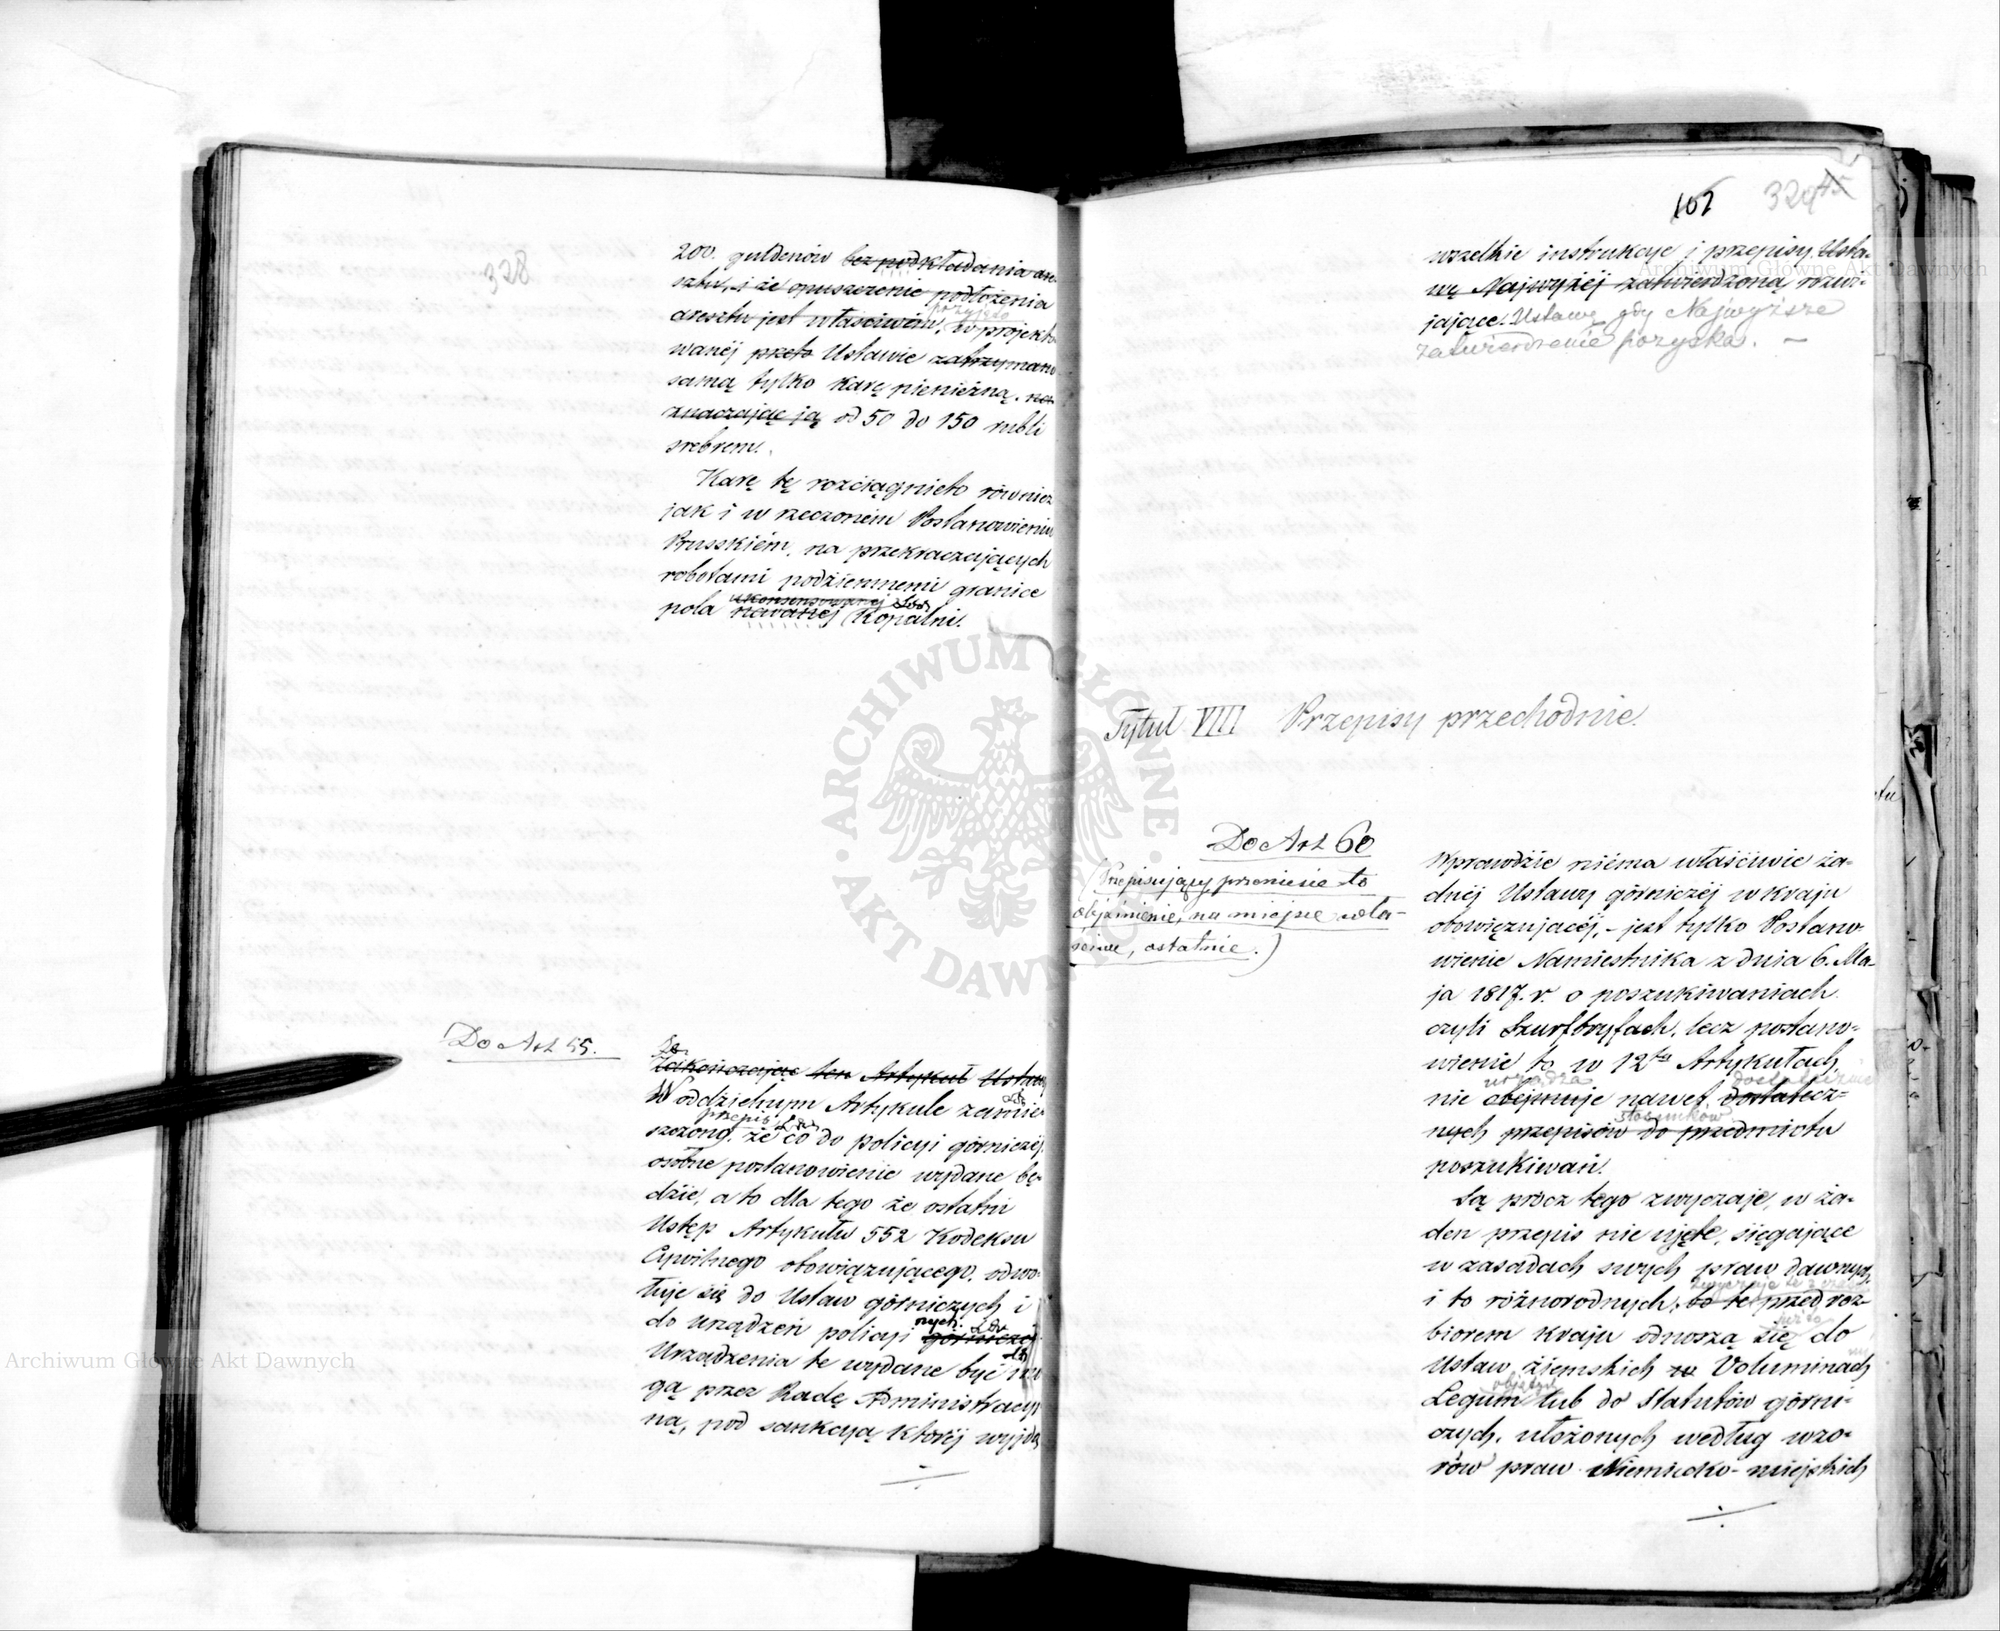 328
200. guldenów bez podkładania are-
sztu, i że opuszczenie podłożenia
aresztu jest właściwém, w projekto-
przyjęto
wanéj przeto Ustawie zatrzymano
samą tylko karę pieniężną, na-
znaczając ją od 50 do 150 rubli
srebrem.
Karę tę rozciągnięto również
jak i w rzeczoném Postanowieniu
Prusskiém, na przekraczających
robotami podziemnemi granice
ukonsensowanéj
pola nadanéj Kopalni.
Do Art 55.
Zakończając ten Artykuł Ustawy
W oddzielnym Artykule zamie-
przepis
szczono, że co do policyi górniczéj,
osobne postanowienie wydane bę-
dzie, a to dla tego że ostatni
Ustęp Artykułu 552 Kodeksu
Cywilnego obowiązującego, odwo-
łuje się do Ustaw górniczych i
do urządzeń policyi górniczéj
nych.
Urządzenia te wydane być mo-
gą przez Radę Administracyj-
ną, pod sankcyą któréj wyjdą
101 329 45
wszelkie instrukcye i przepisy Usta-
wę Najwyżéj zatwierdzoną rozwi-
jające. Ustawę gdy Najwyższe
zatwierdzenie pozyska. —
Tytuł VIII Przepisy przechodnie.
Do Art 60
(Przepisujący przeniesie to
objaśnienie, na miejsce wła-
ściwe, ostatnie.)
Wprawdzie niéma właściwie ża-
dnéj Ustawy górniczéj w kraju
obowiązującéj, – jest tylko Postano-
wienie Namiestnika z dnia 6. Ma-
ja 1817. r. o poszukiwaniach
czyli Szurfbryfach, lecz postano-
wienie to w 12tu Artykułach,
urządza dostatecznie
nie obejmuje nawet dostatecz-
stosunków
nych przepisów do przedmiotu
poszukiwań.
Są prócz tego zwyczaje, w ża-
den przepis nie ujęte, sięgające
w zasadach swych praw dawnych
zwyczaje te z czasów
i to różnorodnych, bo te przed roz-
biorem kraju odnoszą się do
Ustaw ziemskich w Voluminach
objętych
Legum lub do Statutów górni-
czych, ułożonych według wzo-
rów praw Niemiecko-miejskich
ARCHIWUM GŁÓWNE AKT DAWNYCH
Archiwum Główne Akt Dawnych
Archiwum Główne Akt Dawnych